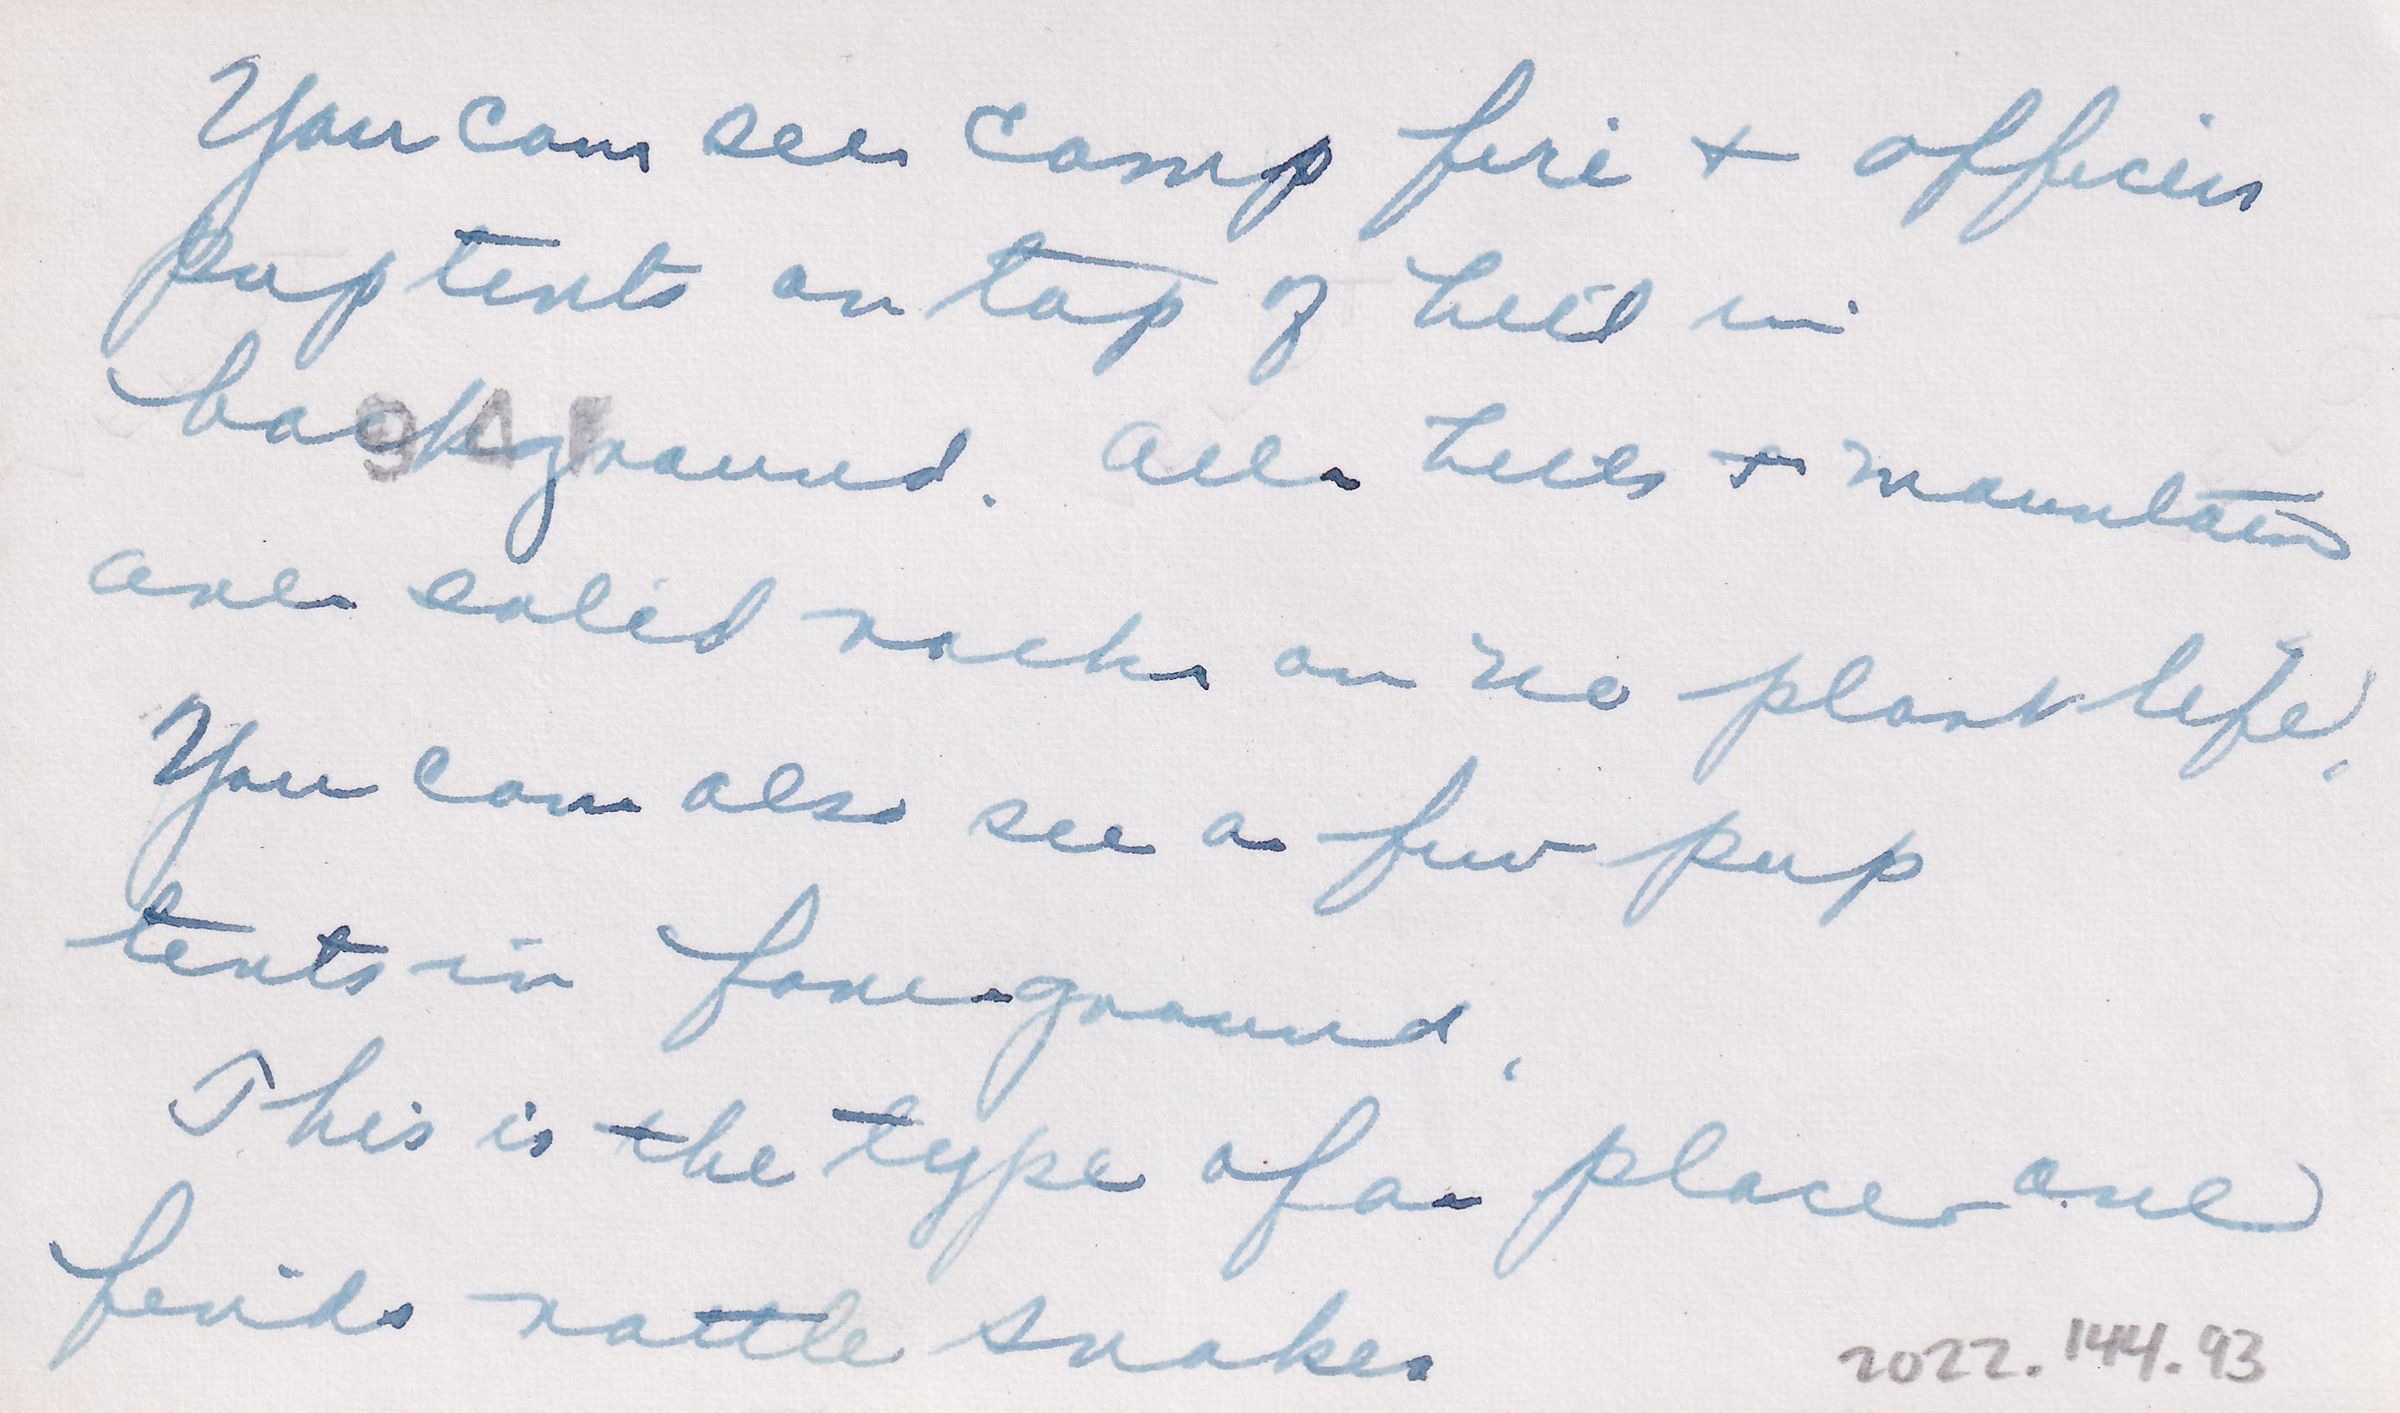 You can see camp fire + officers
pup tents on top of hill in
background. All hills + mountain
are solid rocks on no plant life.
You can also see a few pup
tents in foreground.
This is the type of a place one
finds rattle snakes
2022.144.93